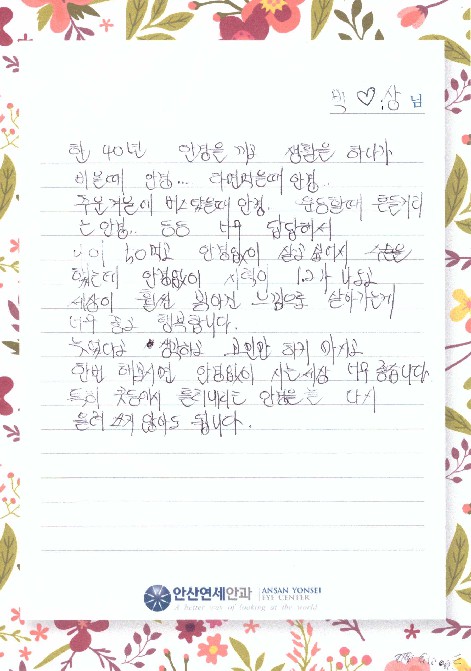 박♡상 님
한 40년 안경을 끼고 생활을 하다가
비올때 안경... 라면먹을때 안경..
추운겨울에 버스탔을때 안경. 운동할때 흔들거리
는 안경.. 등등 너무 답답해서
나이 60먹고 안경없이 살고 싶어서 수술을
했는데 안경없이 시력이 1.2가 나오고
세상이 훨씬 밝아진 느낌으로 살아가는게
너무 좋고 행복합니다.
늦었다고 생각하고 고민만 하지 마시고
한번 해보시면 안경없이 사는세상 너무 좋습니다
특히 콧등에서 흘러내리는 안경을 다시
올려 쓰지 않아도 됩니다.
안산연세안과 ANSAN YONSEI EYE CENTER
A better way of looking at the world